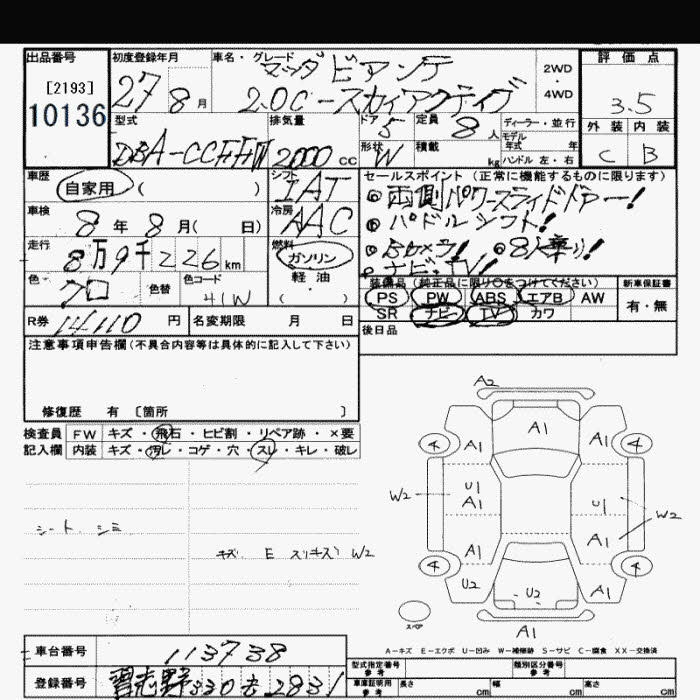 出品番号 [2193] 10136
初度登録年月 27年 8月
車名・グレード マツダ ビアンテ
2.0C-スカイアクティブ
2WD・4WD
評価点 3.5
外装 内装
C B
型式 DBA-CCFFW
排気量 2000cc
ドア 5 形状 W
定員 8人 積載 kg
ディーラー・並行
モデル年式 年
ハンドル 左・右
車歴 自家用 ( )
シフト IAT
車検 8年 8月( 日)
冷房 AAC
走行 8万9千226km
燃料 ガソリン 軽油
色 クロ 色替 色コード 41W
セールスポイント (正常に機能するものに限ります)
両側パワースライドドアー!
パドルシフト!
Bカメラ! 8人乗り!
ナビ・TV!
装備品 (純正品に限り○をつけてください)
PS PW ABS エアB AW
SR ナビ TV カワ
新車保証書 有・無
後日品
R券 14110円 名変期限 月 日
注意事項申告欄(不具合内容等は具体的に記入して下さい)
修復歴 有 〔箇所 〕
検査員記入欄
FW キズ・飛石・ヒビ割・リペア跡・×要
内装 キズ・汚レ・コゲ・穴・スレ・キレ・破レ
シート シミ
キズ E スリキズ W2
A2
A1
4 A1 A1 4
W2 U1 A1 U1 W2
A1 A1
4 4
U2 U2 A1
スペア
A1
A-キズ E-エクボ U-凹み W-補修跡 S-サビ C-腐食 XX-交換済
車台番号 113738
登録番号 習志野 330 も 2831
型式指定番号 参考 類別区分番号 参考
車庫証明用 参考 長さ cm 幅 cm 高さ cm